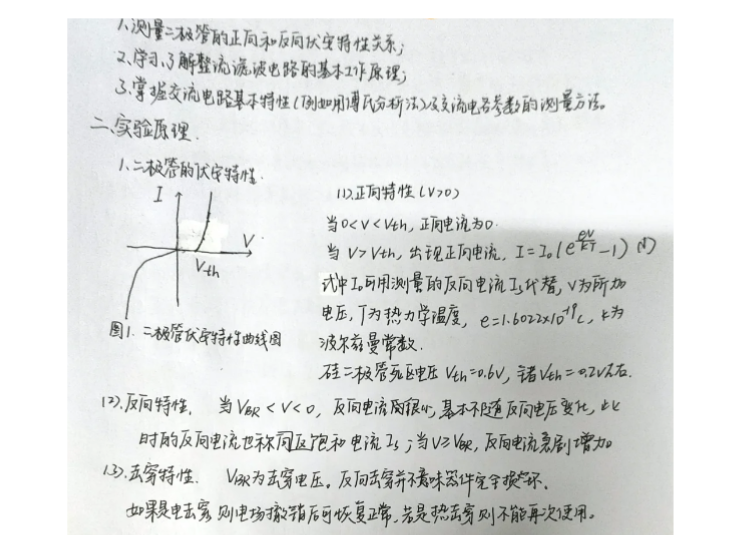 1、测量二极管的正向和反向伏安特性关系;
2、学习、了解整流滤波电路的基本工作原理;
3、掌握交流电路基本特性(例如用傅氏分析法)以及交流电各参数的测量方法。
二、实验原理.
1、二极管的伏安特性.
I
V
Vth
图1. 二极管伏安特性曲线图
(1).正向特性(V>0)
当0<V<Vth, 正向电流为0.
当 V>Vth, 出现正向电流, I=I₀(e^{eV/kT}-1) (1)
式中I₀可用测量的反向电流Is代替, V为所加
电压, T为热力学温度, e=1.6022×10⁻¹⁹C, k为
波尔兹曼常数.
硅二极管死区电压Vth=0.6V, 锗Vth=0.2V左右.
(2).反向特性. 当VBR<V<0, 反向电流很小, 基本不随反向电压变化, 此
时的反向电流也称反向饱和电流Is; 当V≥VBR, 反向电流急剧增加
(3).击穿特性. VBR为击穿电压。反向击穿并不意味器件完全损坏.
如果是电击穿则电场撤销后可恢复正常, 若是热击穿则不能再次使用。